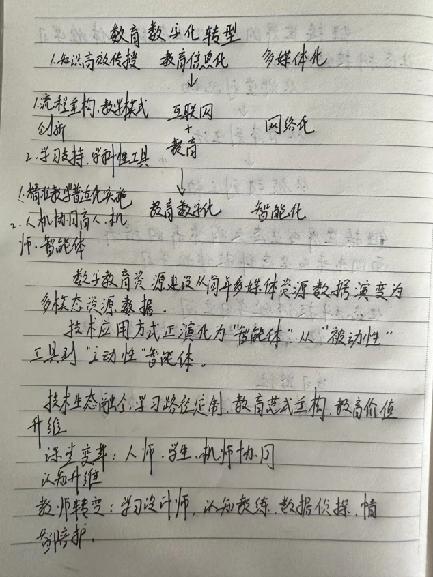 教育数字化转型
1.知识高效传授 教育信息化 多媒体化
1.流程重构、教学模式 互联网
创新 + 网络化
2.学习支持、学科性工具 教育
1.精准教学普适化实施
2.人机协同育人、机 教育数字化 智能化
师、智能体
数字教育资源建设从简单多媒体资源数据演变为
多模态资源数据.
技术应用方式正演化为"智能体"从"被动性"
工具到"主动性"智能体.
技术生态融合,学习路径定制,教育范式重构,教育价值
升维
课堂变革:人师、学生、机师协同
认知升维
教师转变:学习设计师、认知教练、数据侦探、情